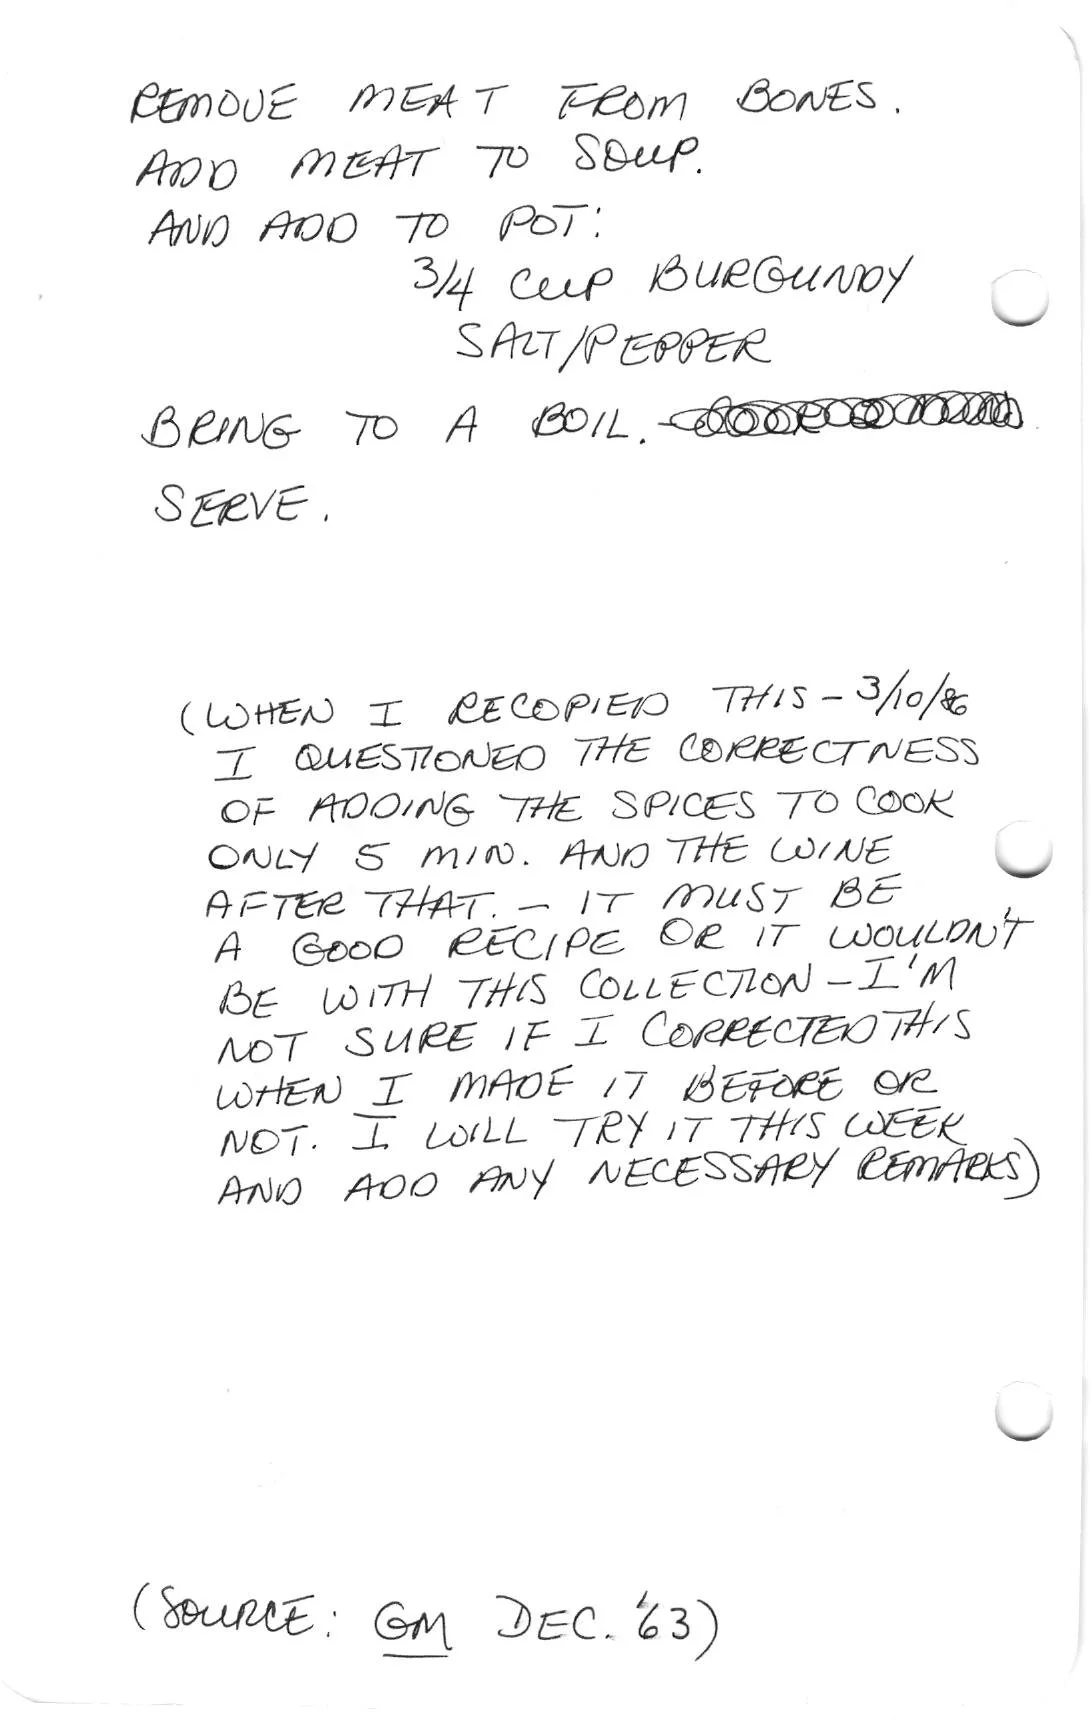 REMOVE MEAT FROM BONES.
ADD MEAT TO SOUP.
AND ADD TO POT:
3/4 CUP BURGUNDY
SALT/PEPPER
BRING TO A BOIL.
SERVE.
(WHEN I RECOPIED THIS – 3/10/86
I QUESTIONED THE CORRECTNESS
OF ADDING THE SPICES TO COOK
ONLY 5 MIN. AND THE WINE
AFTER THAT. – IT MUST BE
A GOOD RECIPE OR IT WOULDN'T
BE WITH THIS COLLECTION – I'M
NOT SURE IF I CORRECTED THIS
WHEN I MADE IT BEFORE OR
NOT. I WILL TRY IT THIS WEEK
AND ADD ANY NECESSARY REMARKS)
(SOURCE: GM DEC. '63)